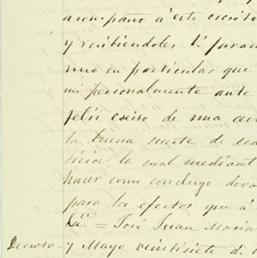 acompaño á este escrito
y recibiendoles V. juram
uno en particular que
mi personalmente ante
feliz exito de una
la buena suerte de
ticia, la cual mediant
hacer como concluyo
para los efectos que á
José Juan Maria
Decreto y Mayo veintisiete de